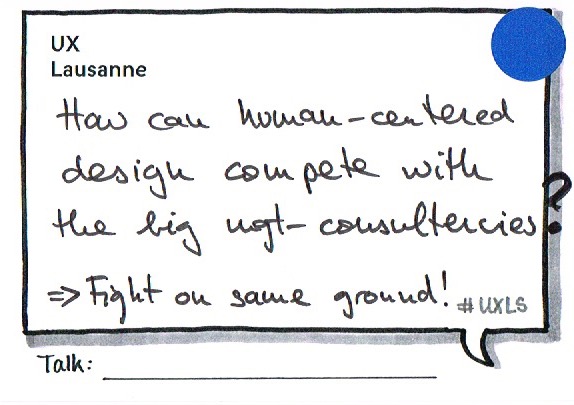 UX
Lausanne
How can human-centered
design compete with
the big mgt-consultercies?
=> Fight on same ground!
#UXLS
Talk: